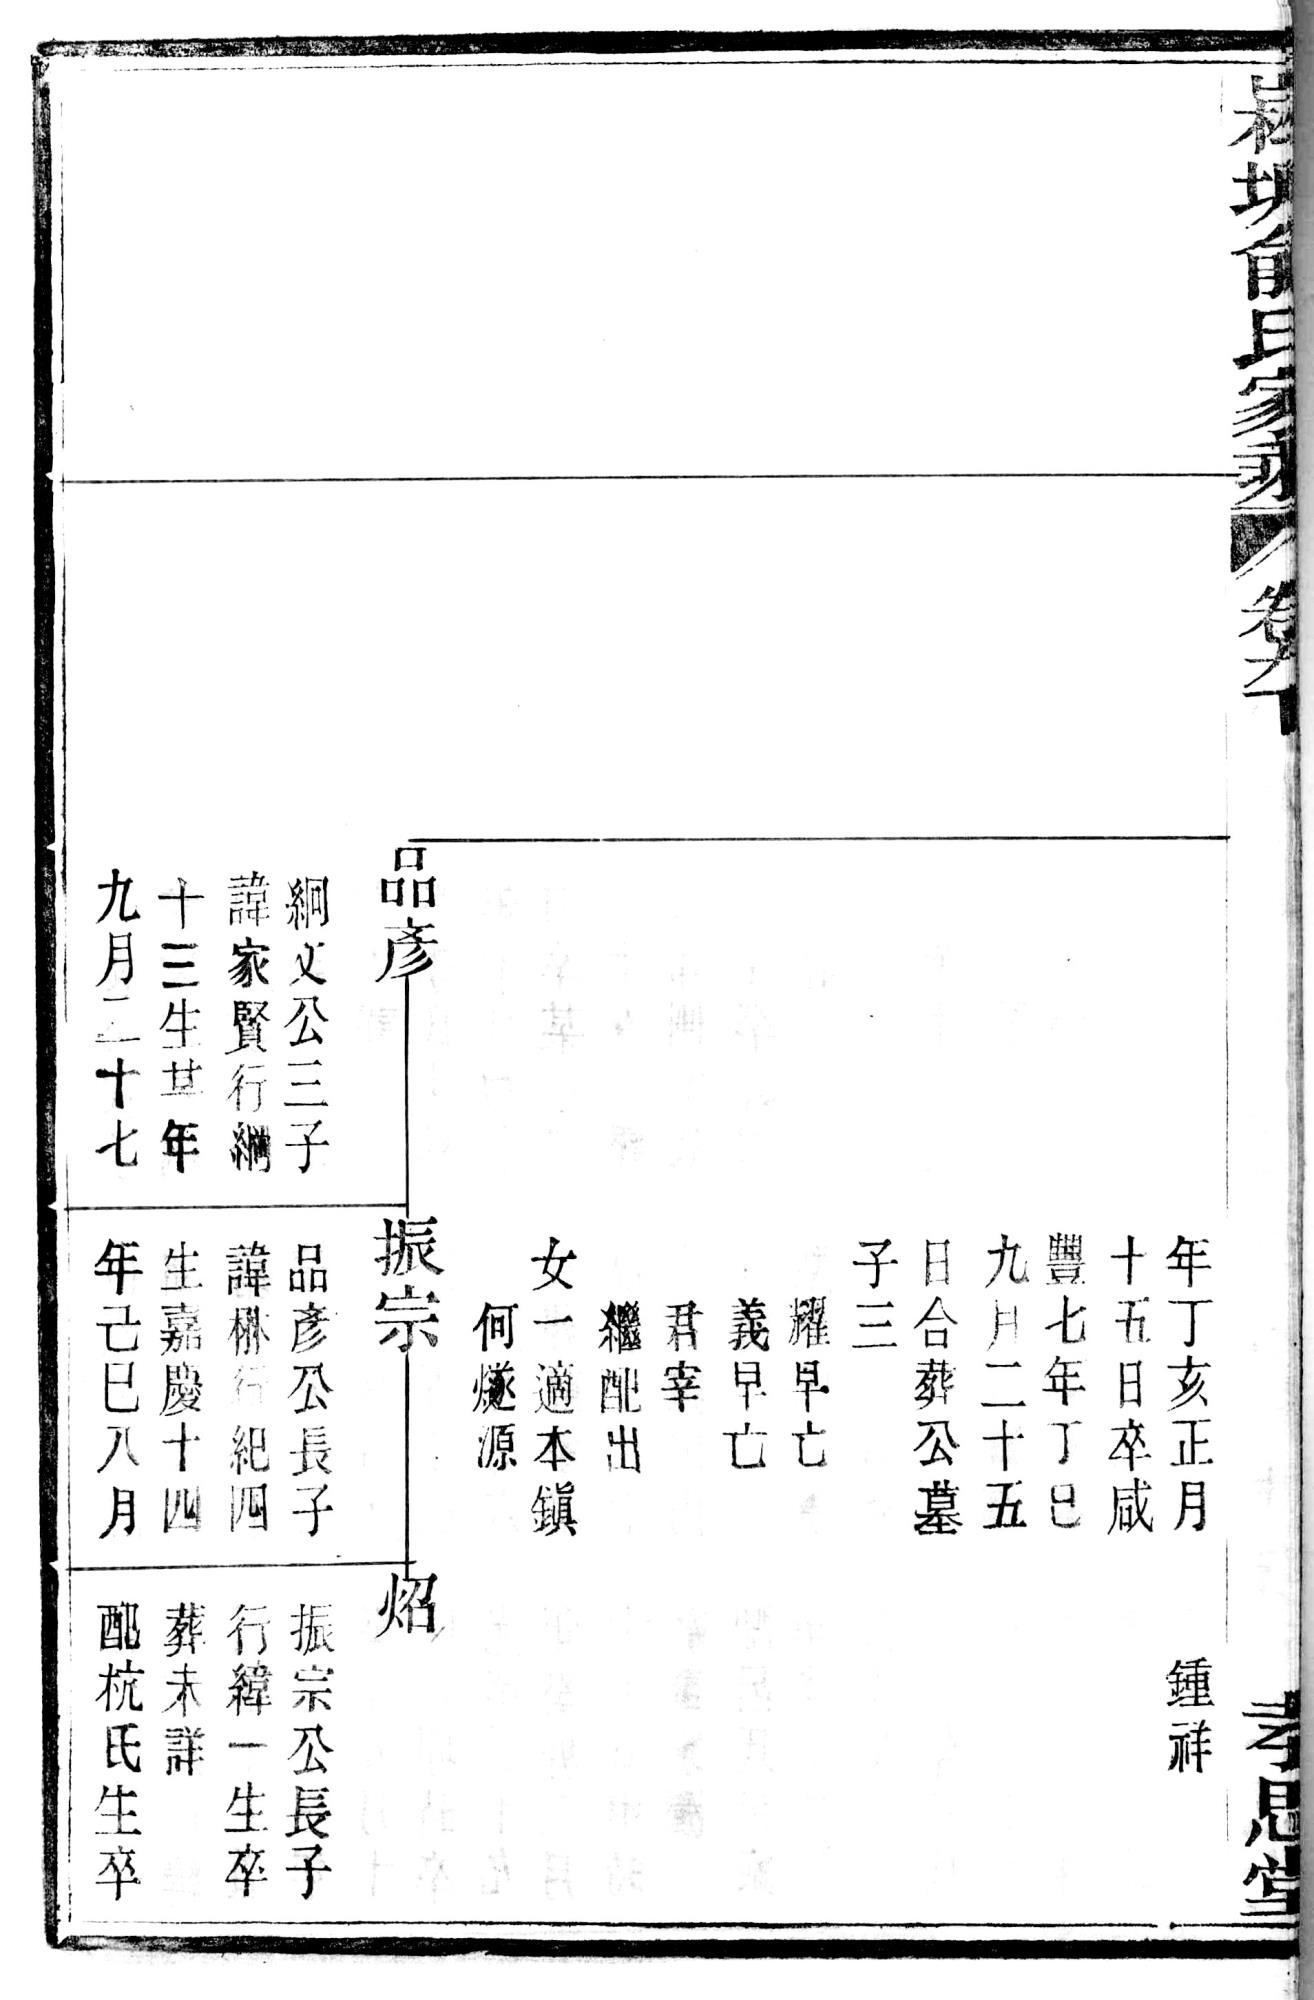 俞氏家乘
卷
孝思堂
年丁亥正月
十五日卒咸
豐七年丁巳
九月二十五
日合葬公墓
子三
耀早亡
義早亡
君宰
繼配出
女一適本鎮
何燧源
鍾祥
品彥
絅文公三子
諱家賢行綱
十三生廿年
九月二十七
振宗
品彥公長子
諱楙行紀四
生嘉慶十四
年己巳八月
炤
振宗公長子
行緯一生卒
葬未詳
配杭氏生卒